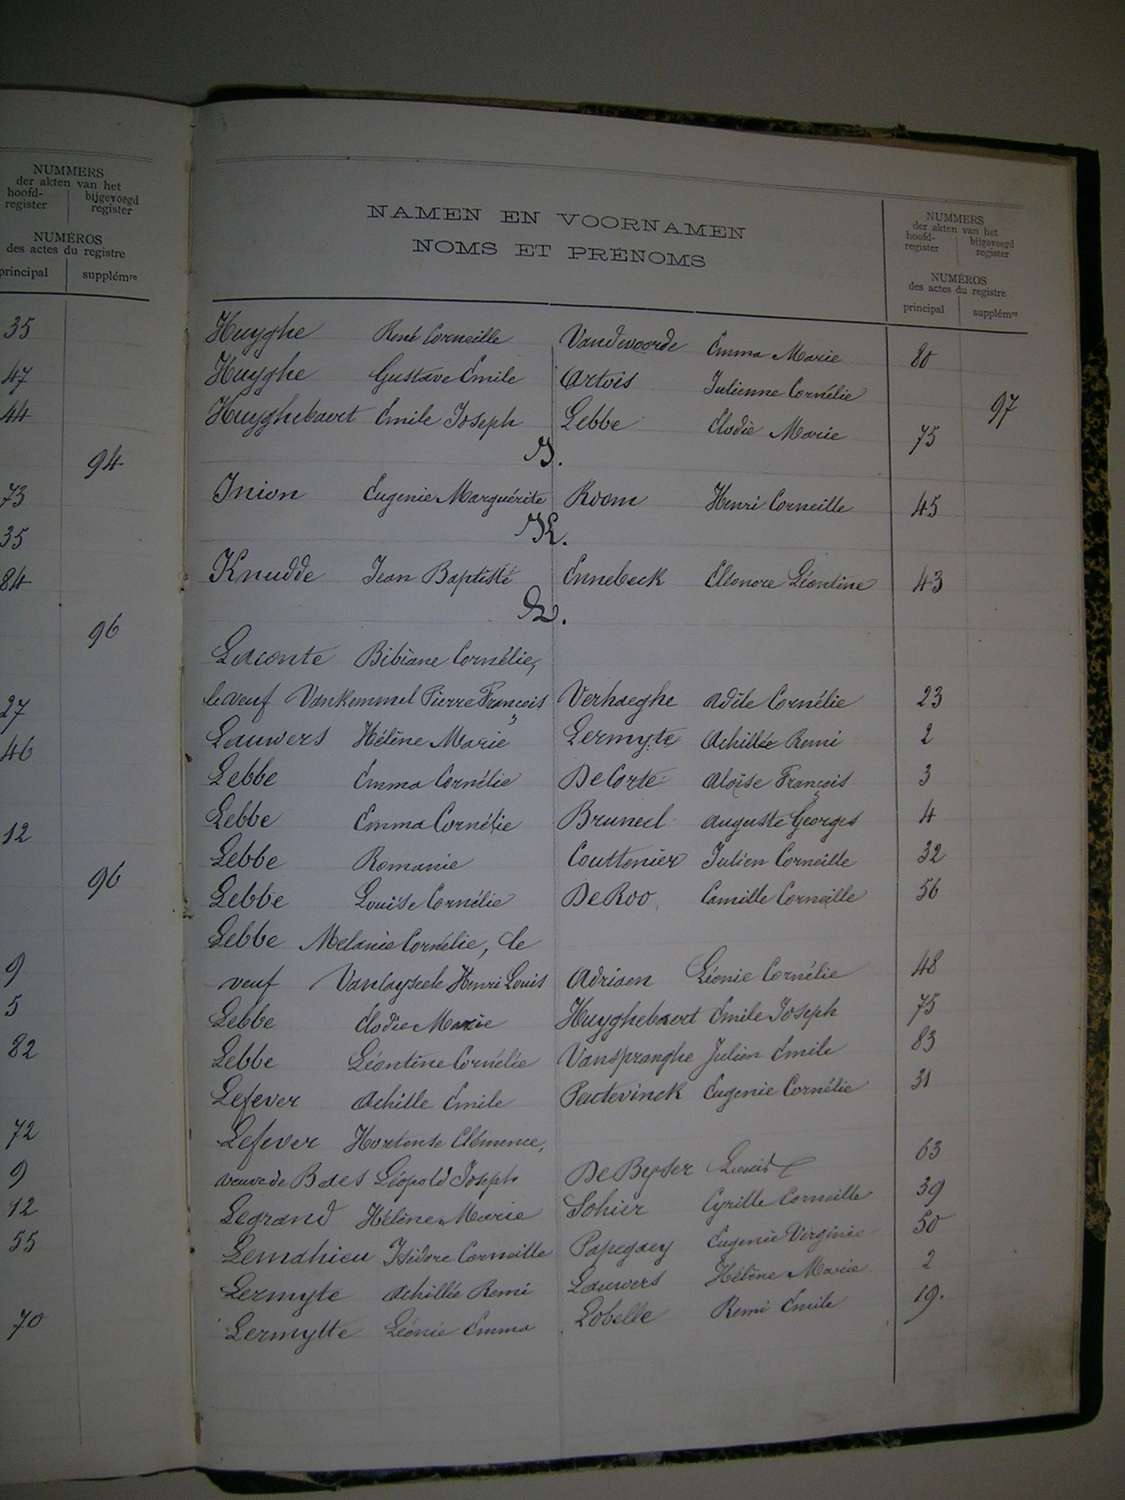 NUMMERS
der akten van het
hoofd-register bijgevoegd register
NUMÉROS
des actes du registre
principal supplémre
35
47
44
94
73
35
84
96
27
46
12
96
9
5
82
72
9
12
55
70
NAMEN EN VOORNAMEN
NOMS ET PRÉNOMS
NUMMERS
der akten van het
hoofd-register bijgevoegd register
NUMÉROS
des actes du registre
principal supplémre
Huyghe René Corneille Vandevoorde Emma Marie 80
Huyghe Gustave Emile Artois Julienne Cornélie 97
Huyghebaert Emile Joseph Lebbe Elodie Marie 75
I.
Inion Eugenie Marguérite Room Henri Corneille 45
K.
Knudde Jean Baptiste Ennebeck Eléonore Léontine 43
L.
Laconte Bibiane Cornélie,
le veuf Vankemmel Pierre François Verhaeghe Adile Cornélie 23
Lauwers Hélène Marie Lermyte Achille Remi 2
Lebbe Emma Cornélie De Corte Aloïse François 3
Lebbe Emma Cornélie Bruneel Auguste Georges 4
Lebbe Romanie Couttenier Julien Corneille 32
Lebbe Louise Cornélie De Roo Camille Corneille 56
Lebbe Melanie Cornélie, le
veuf Henri Louis Adriaen Léonie Cornélie 48
Lebbe Elodie Marie Huyghebaert Emile Joseph 75
Lebbe Léontine Cornélie Vanspranghe Julien Emile 83
Lefever Achille Emile Pactevinck Eugenie Cornélie 31
Lefever Hortense Clémence,
veuve de Baes Léopold Joseph De Beyser 63
Legrand Hélène Marie Sohier Cyrille Corneille 39
Lemahieu Isidore Corneille Papegaey Eugenie Virginie 50
Lermyte Achille Remi Lauwers Hélène Marie 2
Lermytte Léonie Emma Lobelle Remi Emile 19.